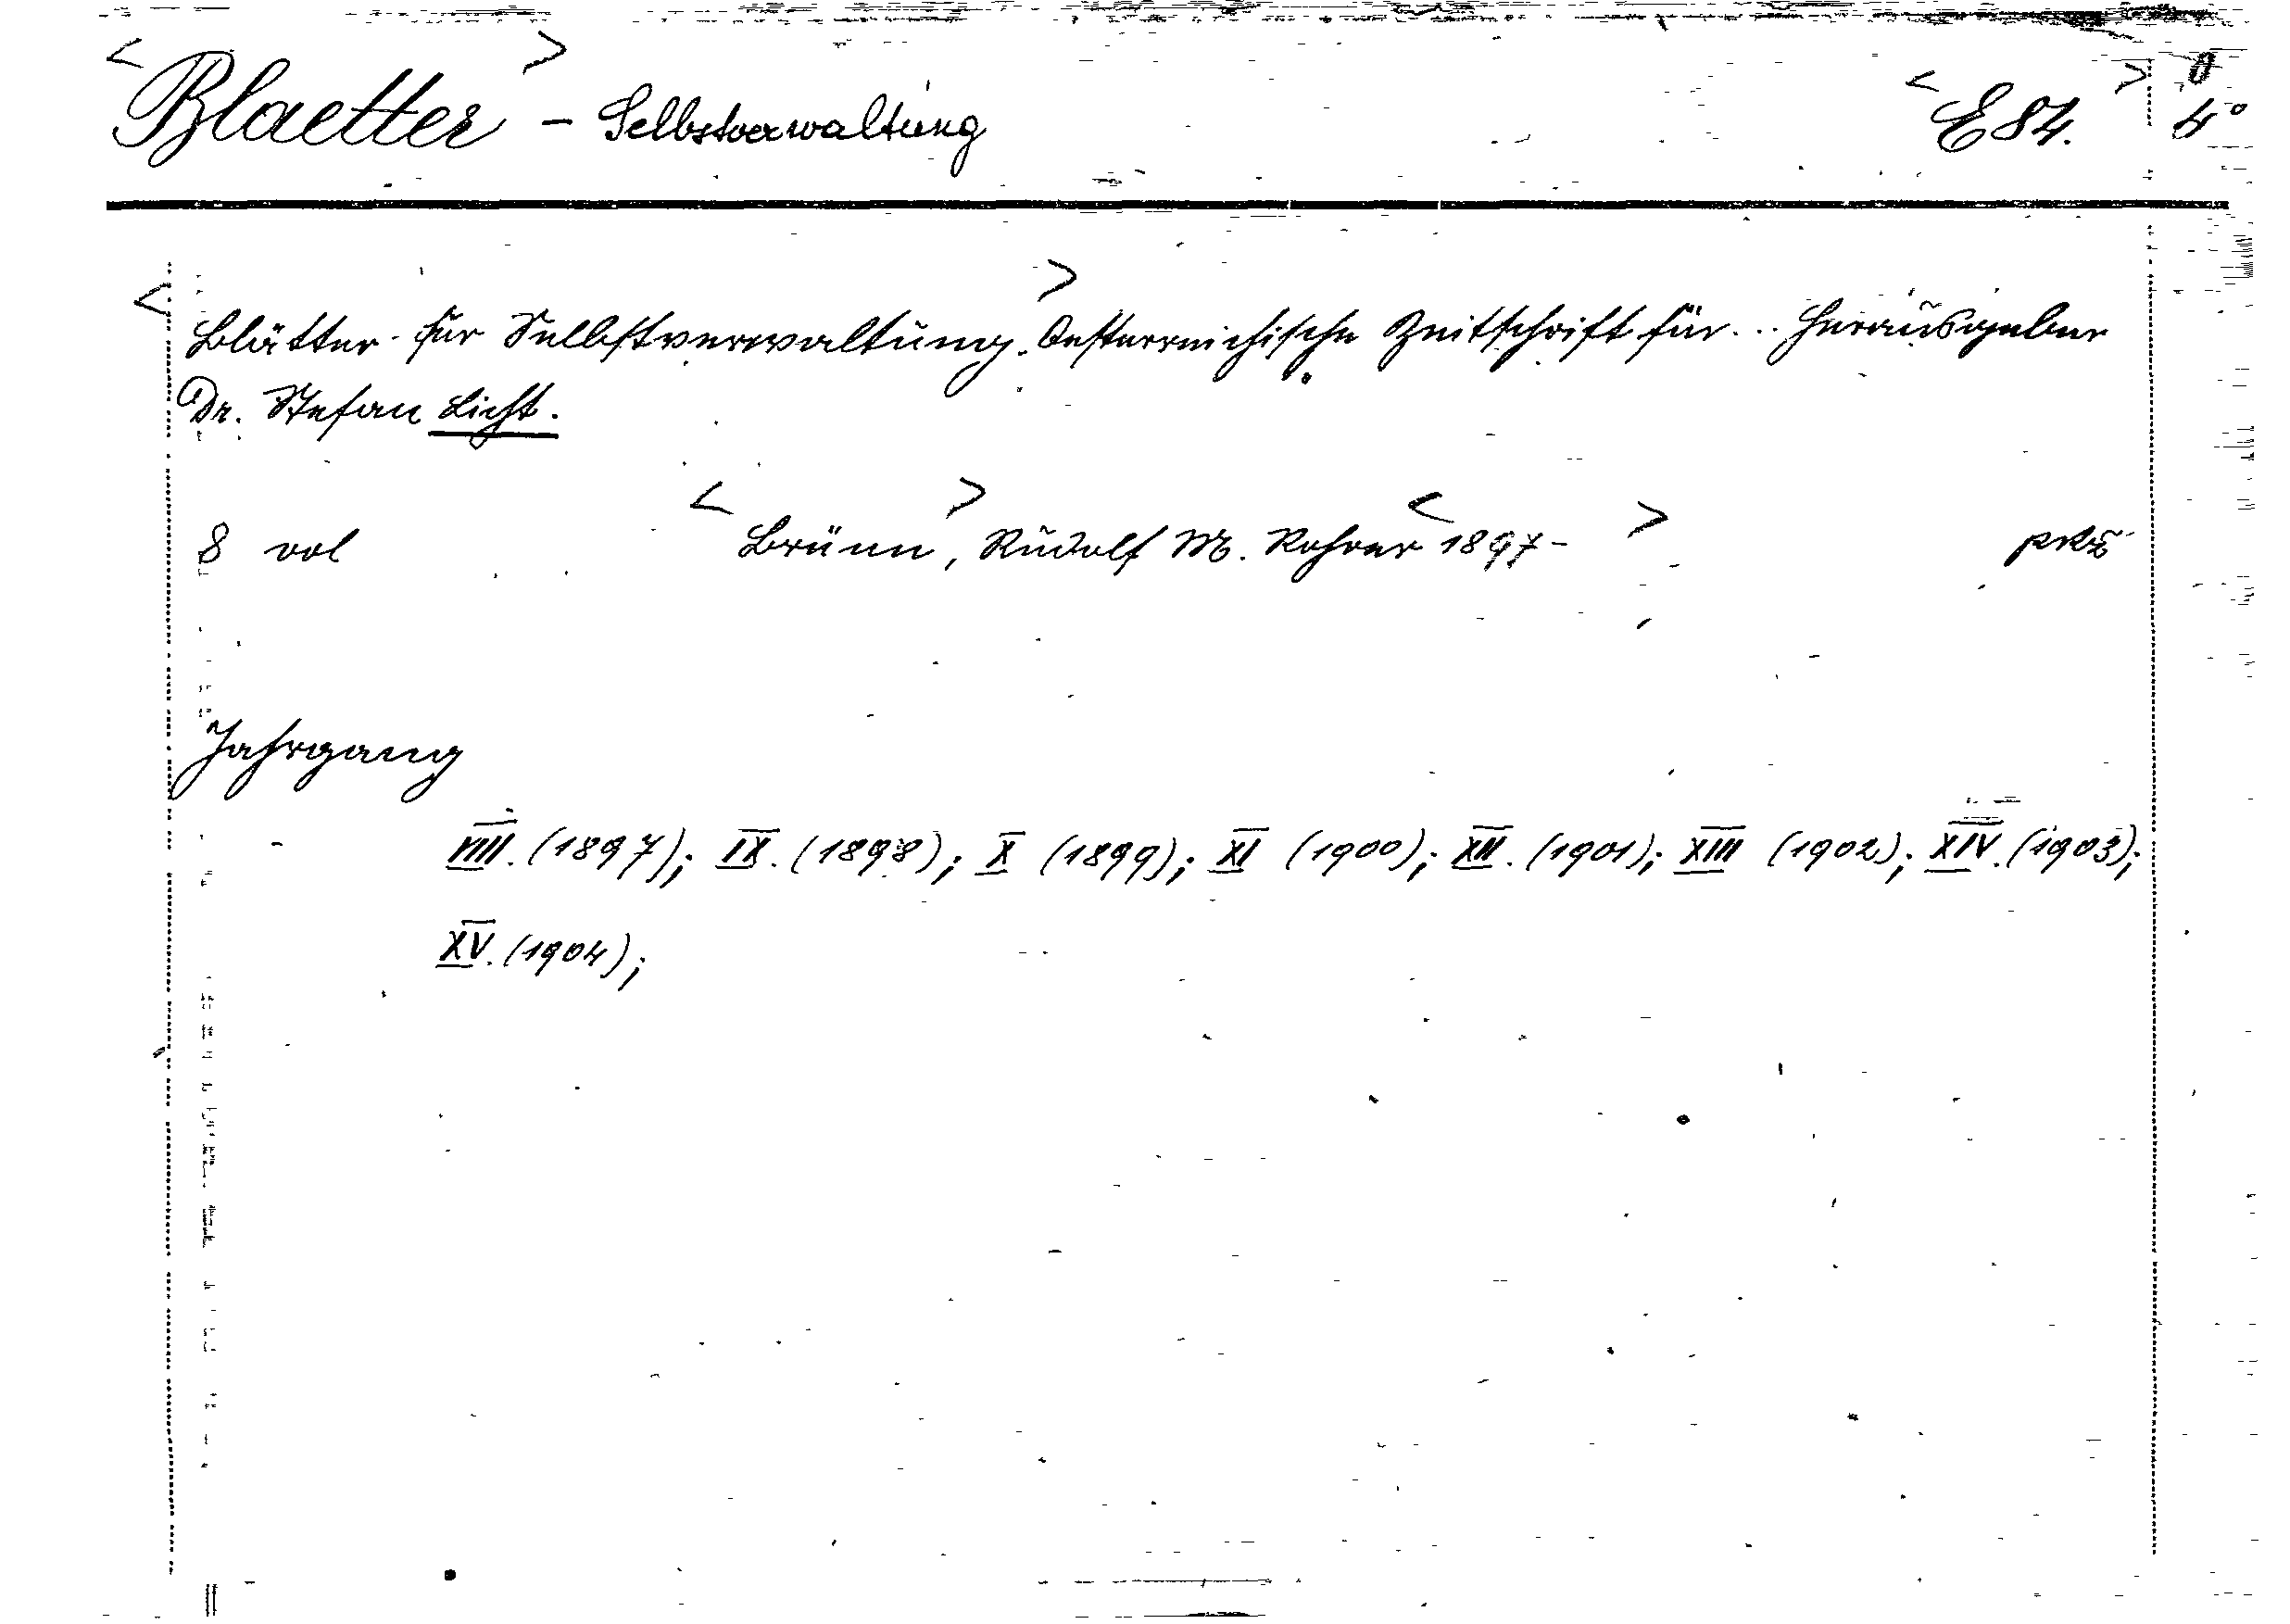 <Blaetter> - Selbstverwaltung <E 84.> 4°
<Blätter für Selbstverwaltung.> Oesterreichische Zeitschrift für... Herausgeber
Dr. Stefan Licht.
8 vol <Brünn>, Rudolf M. Rohrer <1897- >
Jahrgang
VIII. (1897); IX. (1898); X (1899); XI (1900); XII. (1901); XIII (1902); XIV. (1903);
XV. (1904);